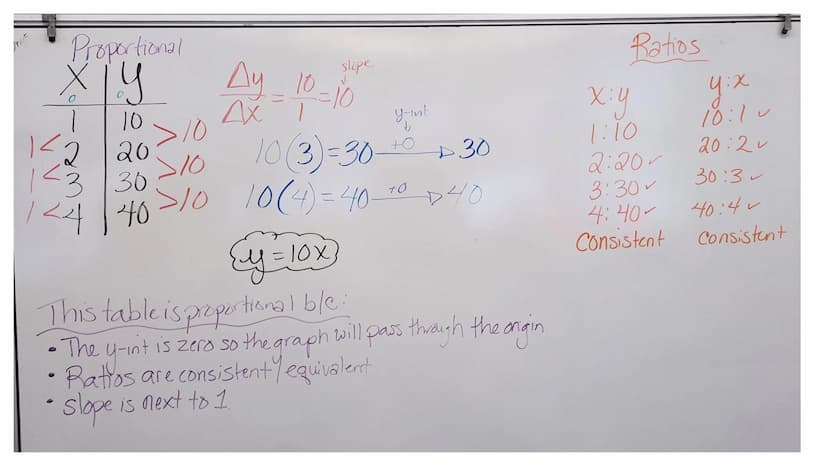 Proportional
X | Y
0 | 0
1 | 10
2 | 20
3 | 30
4 | 40
1 <
1 <
1 <
> 10
> 10
> 10
Δy/Δx = 10/1 = 10
slope
y-int
10(3) = 30 +0 → 30
10(4) = 40 +0 → 40
y = 10x
Ratios
x:y
1:10
2:20 ✓
3:30 ✓
4:40 ✓
Consistent
y:x
10:1 ✓
20:2 ✓
30:3 ✓
40:4 ✓
Consistent
This table is proportional b/c:
• The y-int is zero so the graph will pass through the origin
• Ratios are consistent/equivalent
• Slope is next to 1